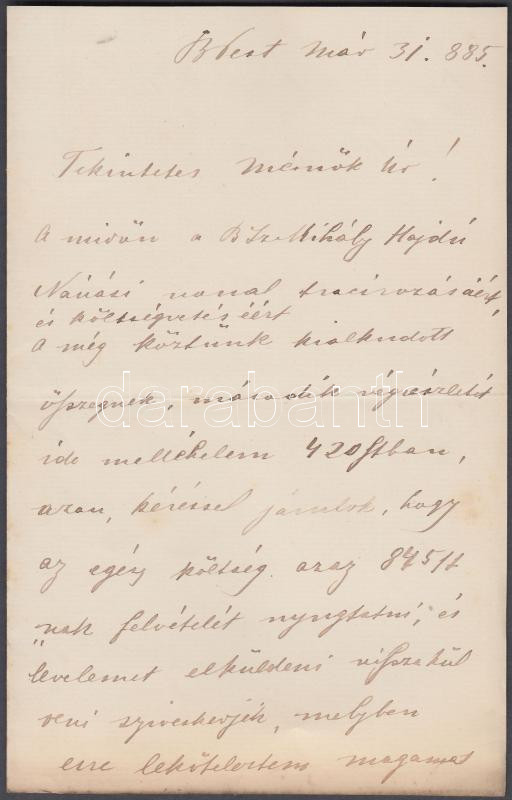 BPest Már 31. 885.
Tekintetes Mérnök Úr!
A midőn a BSz Mihály Hajdú
Nánási vonal tracirozásáért,
és költségvetés éért
a még köztünk kialkudott
összegnek, második végrészletét
ide mellékelem 420ftban,
azon, kéréssel járulok, hogy
az egész költség azaz 845ft
"nak felvételét nyugtatni, és
levelemet elküldeni visszakül
deni sziveskedjék, melyben
erre leköteleztem magamat
darabanth